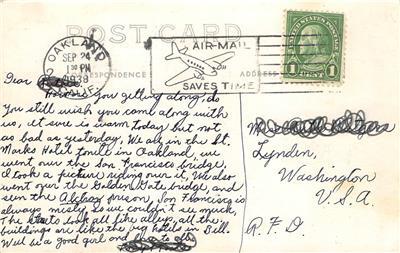 POST CARD
OAKLAND
SEP 24
1 30 PM
1938
CALIF.
AIR-MAIL
SAVES TIME
UNITED STATES POSTAGE
1 CENT 1
CORRESPONDENCE
ADDRESS
Dear
you getting along, do
You still wish you came along with
us, it sure is warm today but not
as bad as yesterday, We are in the St.
Marks Hotel tonite in Oakland, we
went over the San Francisco bridge,
I took a picture riding over it, We also
went over the Golden Gate bridge, and
seen the Alcatraz prison, San Francisco is
always misty, so we couldn't see much,
The look all like alleys, all the
buildings are like the big hotels in Bell.
Well be a good girl and
Lynden,
Washington
U.S.A.
R.F.D.